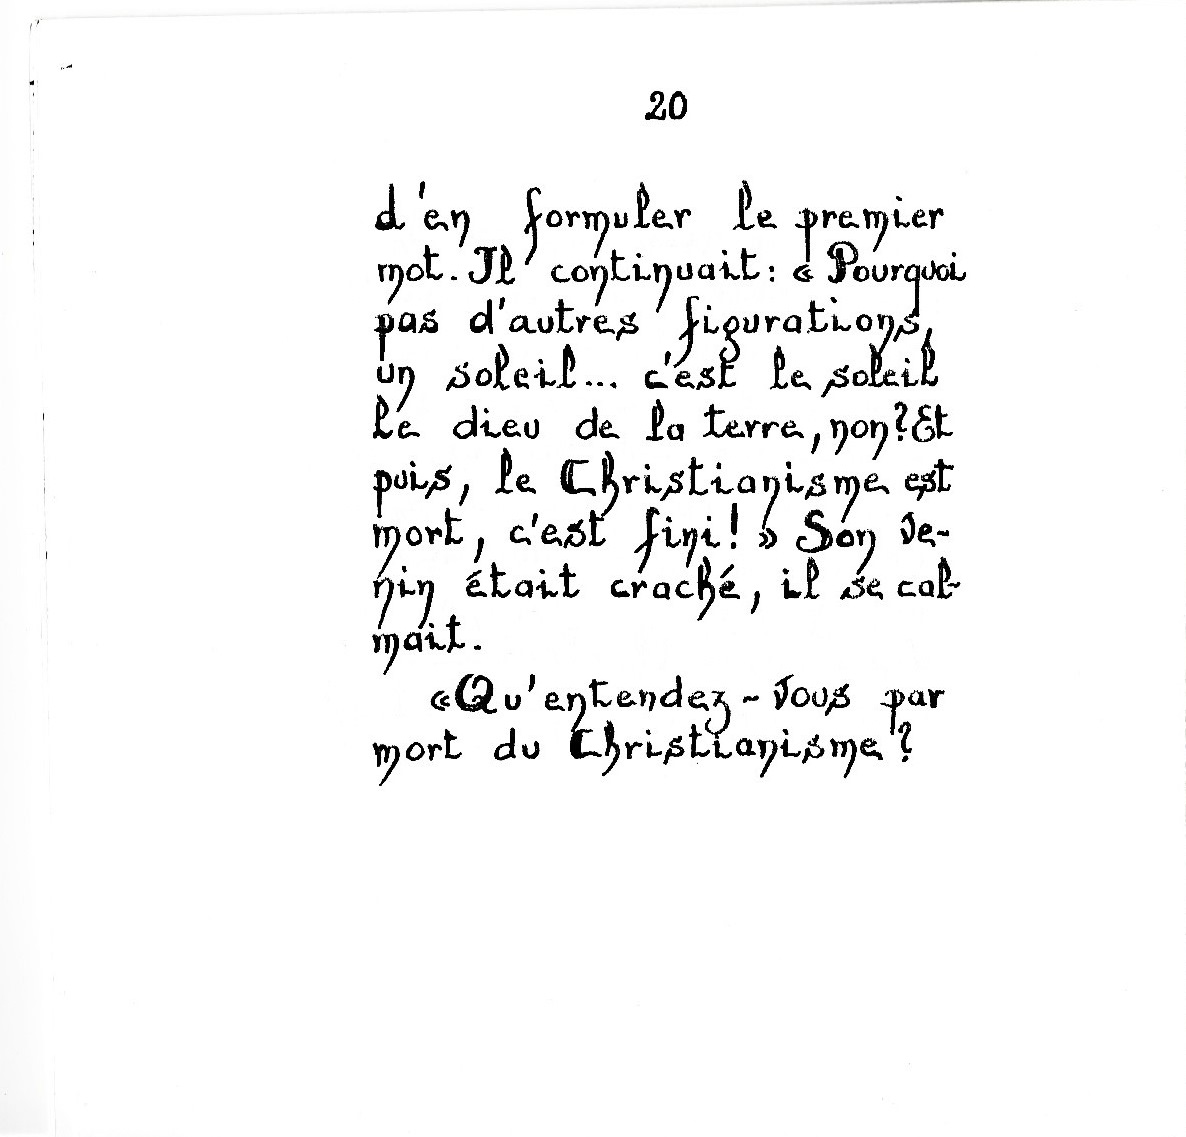 20
d'en formuler le premier
mot. Il continuait : « Pourquoi
pas d'autres figurations,
un soleil... c'est le soleil
le dieu de la terre, non? Et
puis, le Christianisme est
mort, c'est fini! » Son ve-
nin était craché, il se cal-
mait.
«Qu'entendez-vous par
mort du Christianisme?